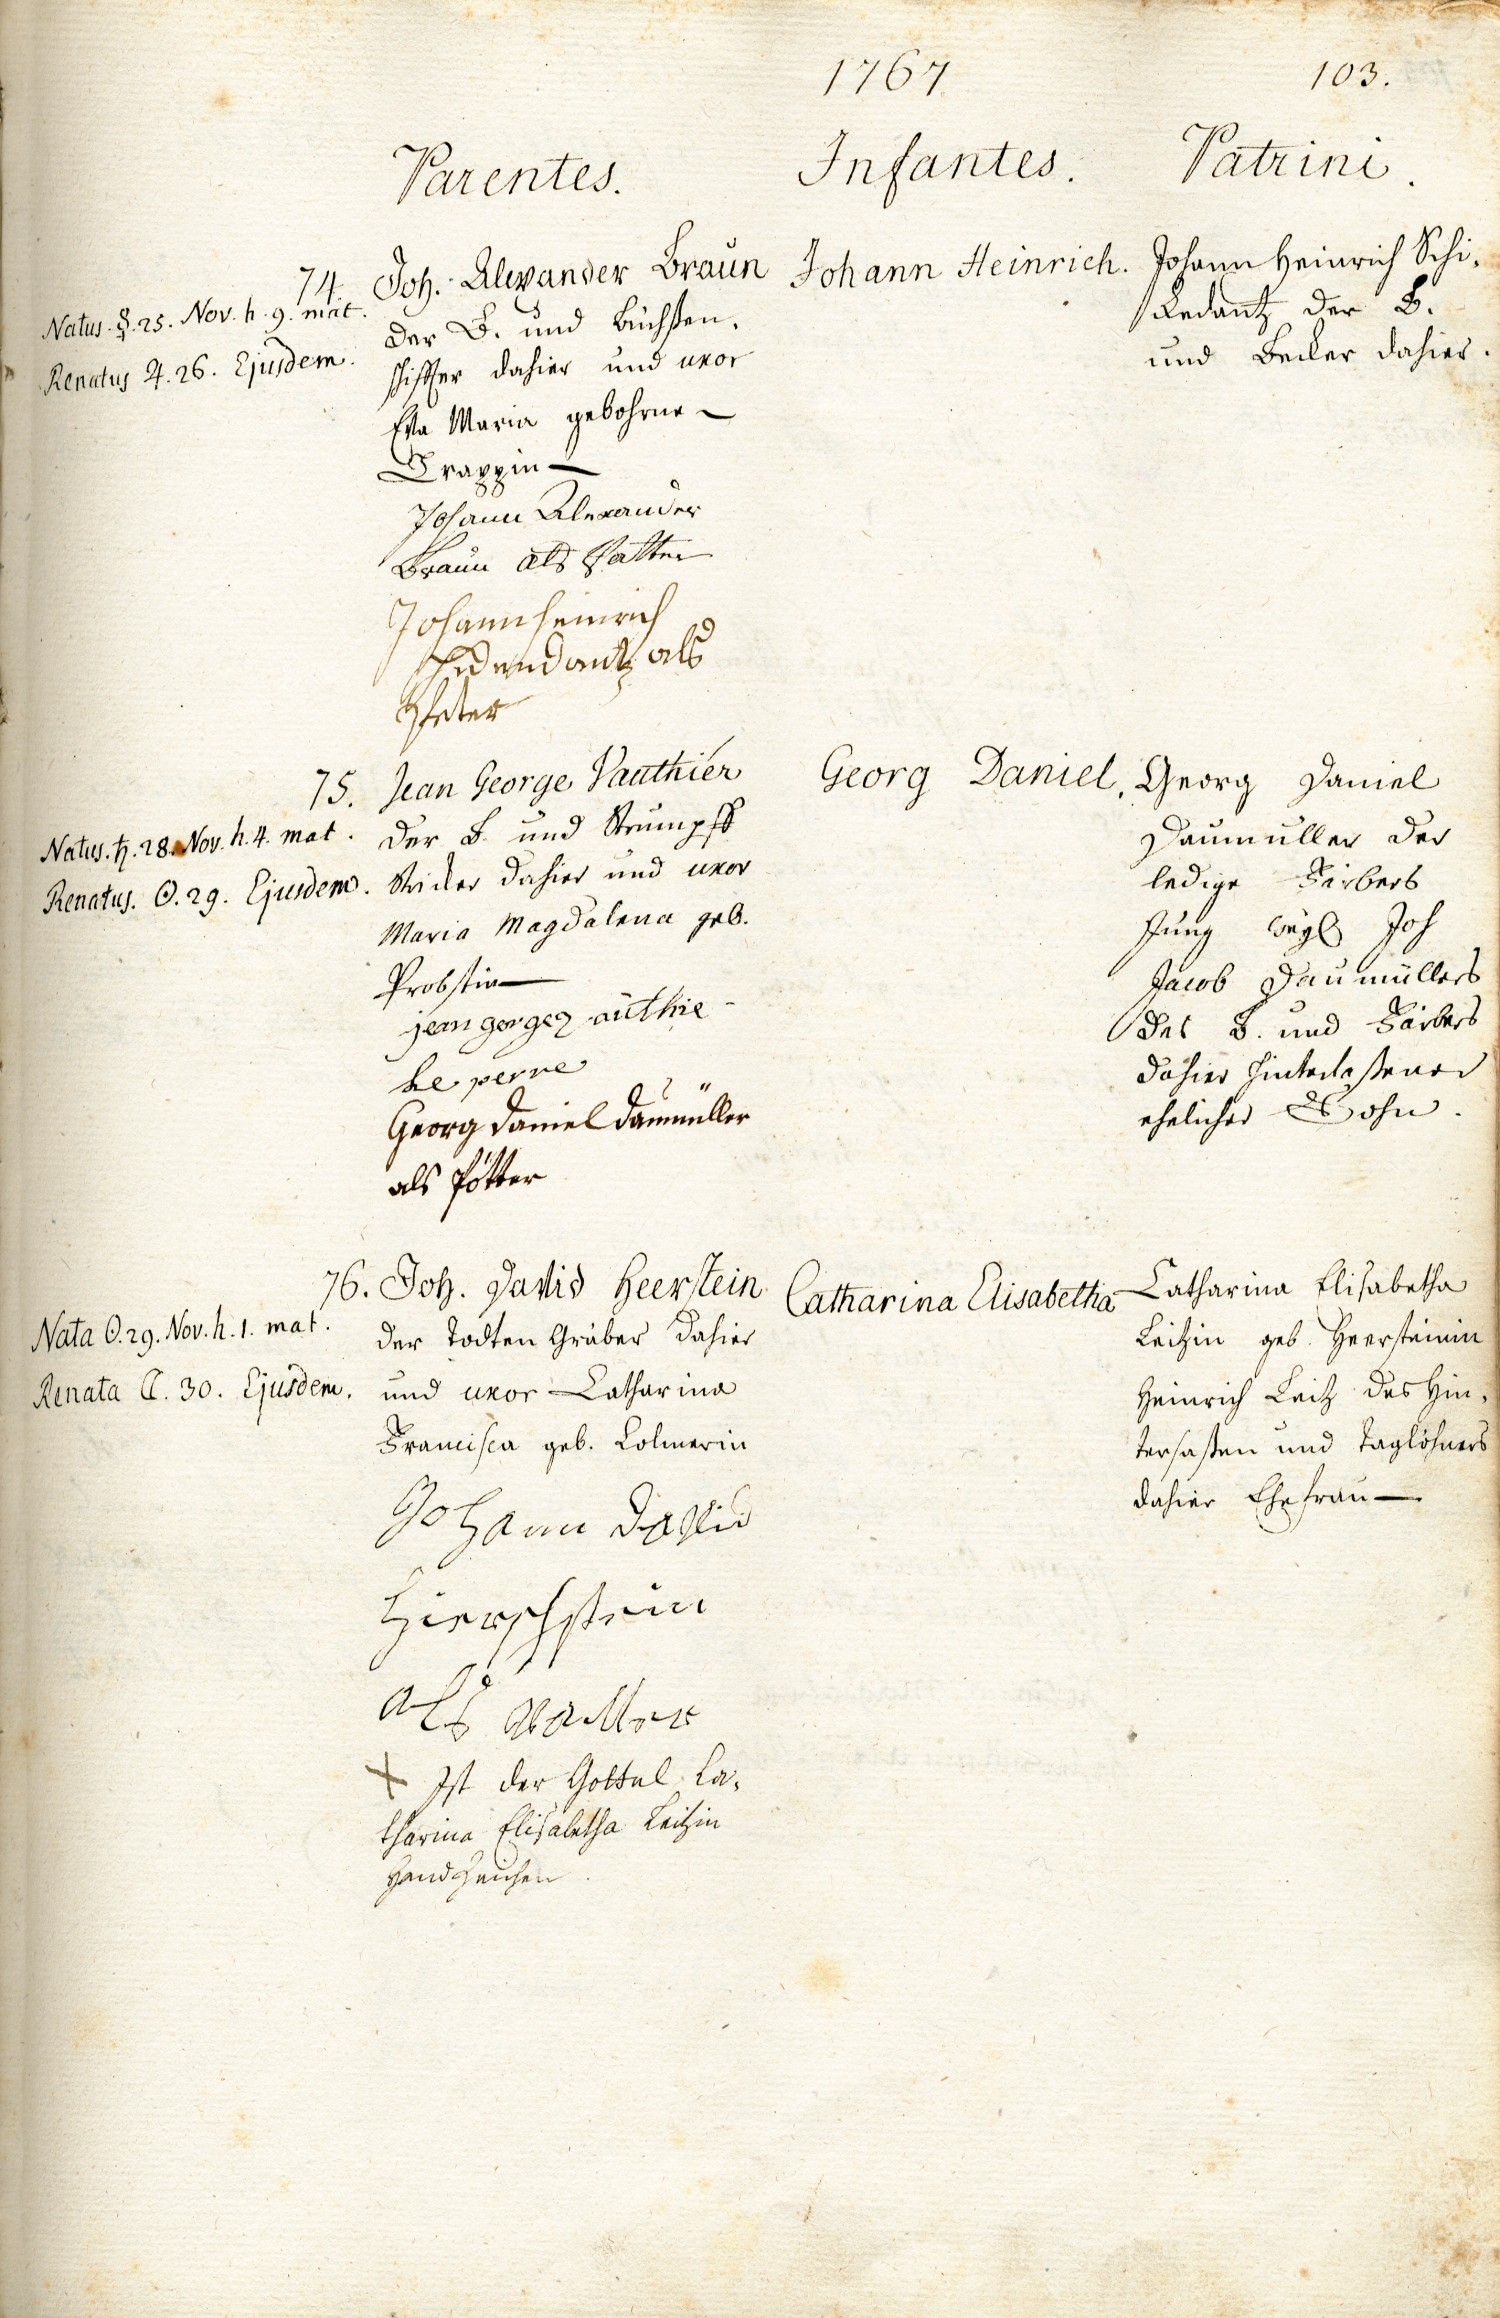 1767
103.
Parentes.
Infantes.
Patrini.
74.
Natus. ☿. 25. Nov. h. 9. mat.
Renatus ♃. 26. Ejusdem.
Joh. Alexander Braun
der B. und Büchsen,
schiffter dahier und uxor
Eva Maria gebohrne
Trappin
Johann Alexander
Braun als Vatter
Johann Heinrich
als
Pfeter
Johann Heinrich.
Johann Heinrich Schi,
kedantz der B.
und Becker dahier.
75.
Natus. ♄. 28. Nov. h. 4. mat.
Renatus. ☉. 29. Ejusdem.
Jean George Vauthier
der B. und Strumpff
Stricker dahier und uxor
Maria Magdalena geb.
Probstin
jean george vauthie
le perre
Georg Daniel Daumüller
als Pötter
Georg Daniel.
Georg Daniel
Daumuller der
ledige Färbers
Jung weyl Joh
Jacob Daumüllers
des B. und Färbers
dahier hinterlaßener
ehelicher Sohn.
76.
Nata ☉. 29. Nov. h. 1. mat.
Renata ☾. 30. Ejusdem.
Joh. David Heerstein
der Todten Gräber dahier
und uxor Catharina
Francisca geb. Colmerin
Johann David
Hierschstein
als Vatter
+ Ist der Gottel Ca,
tharina Elisabetha Leitzin
Handzeichen.
Catharina Elisabetha
Catharina Elisabetha
Leitzin geb. Heersteinin
Heinrich Leitz des Hin,
tersaßen und Taglöhners
dahier Ehefrau